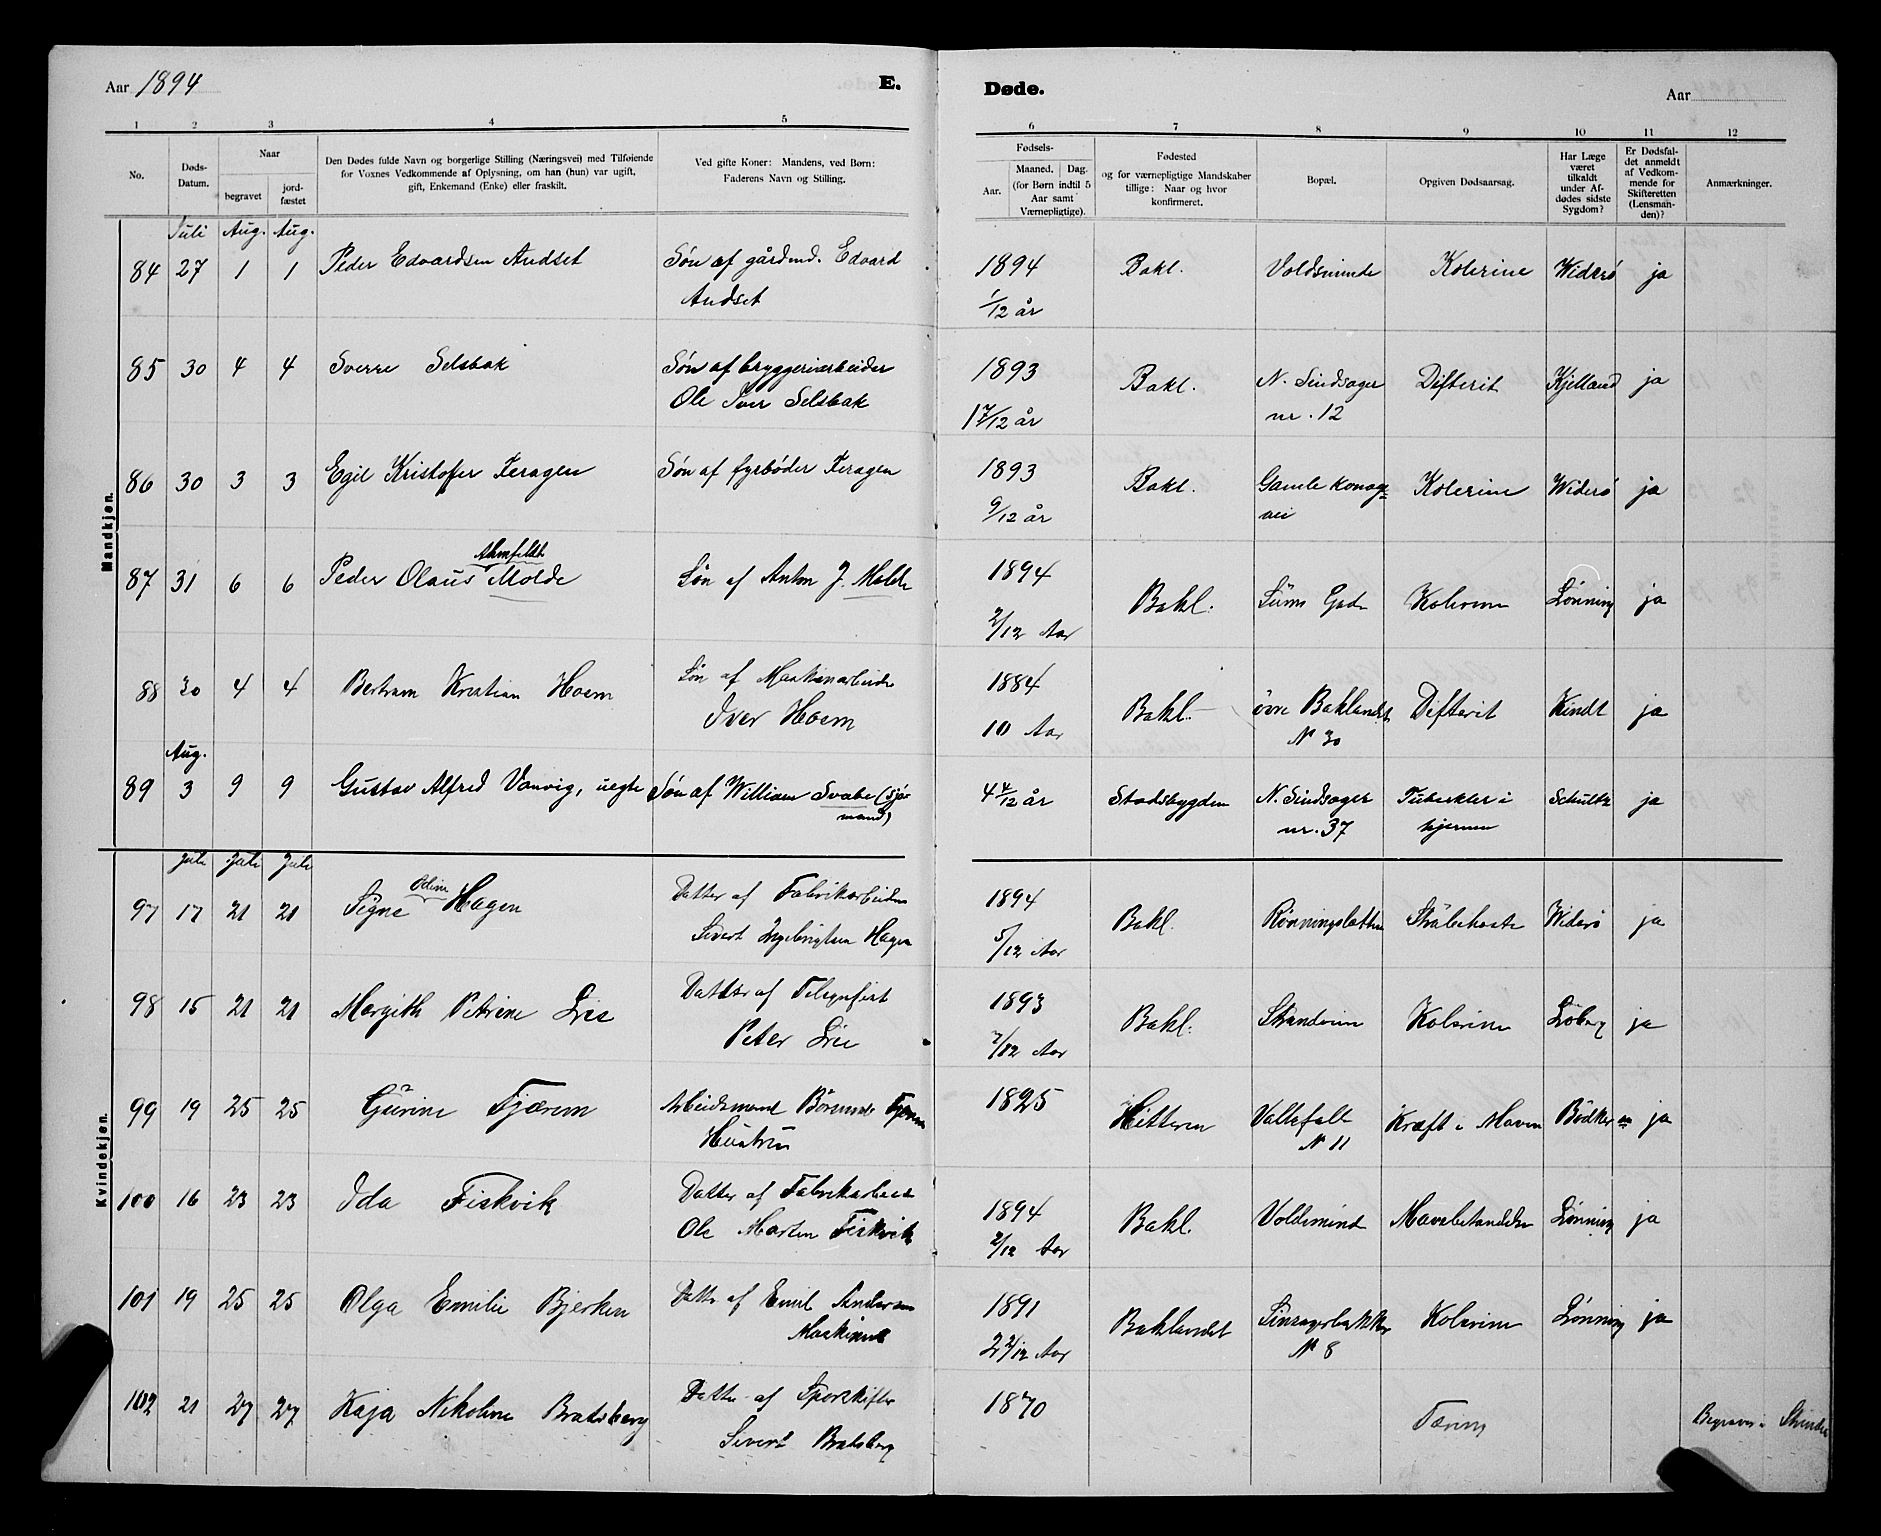 Aar 1894 E. Døde. Aar
1 2 3 4 5 6 7 8 9 10 11 12
No. Døds-Datum. Naar begravet jordfæstet Den Dødes fulde Navn og borgerlige Stilling (Næringsvei) med Tilføiende for Voxnes Vedkommende af Oplysning, om han (hun) var ugift, gift, Enkemand (Enke) eller fraskilt. Ved gifte Koner: Mandens, ved Børn: Faderens Navn og Stilling. Fødsels- Aar. Maaned. Dag. (for Børn indtil 5 Aar samt Værnepligtige). Fødested og for værnepligtige Mandskaber tillige: Naar og hvor konfirmeret. Bopæl. Opgiven Dødsaarsag. Har Læge været tilkaldt under Afdødes sidste Sygdom? Er Dødsfaldet anmeldt af Vedkommende for Skifteretten (Lensmanden)? Anmærkninger.
Mandkjøn.
Juli Aug. Aug.
84 27 1 1 Peder Edvardsen Andset Søn af gårdmd. Edvard 1894 Bakl. Voldsminde Kolerine Widerø ja
Andset 1/12 år
85 30 4 4 Sverre Selsbak Søn af bryggeriarbeider 1893 Bakl. N. Sindsager Difterit Kjelland ja
Ole Iver Selsbak 1 7/12 år nr. 12
86 30 3 3 Egil Kristofer Feragen Søn af fyrbøder Feragen 1893 Bakl. Gamle Konge Kolerine Widerø ja
9/12 år vei
Almfeldt
87 31 6 6 Peder Olaus Molde Søn af Anton J. Molde 1894 Bakl. Gade Kolerine Lønning ja
2/12 Aar
88 30 4 4 Bertram Kristian Hoem Søn af Maskinarbeider 1884 Bakl. øvre Baklandet Difterit Kindt ja
Iver Hoem 10 Aar N 30
Aug.
89 3 9 9 Gustav Alfred Vanvig, uegte Søn af William Svabe (sjø- 4 4/12 år Stadsbygden N. Sindsager Tuberkler i Schultz ja
mand) nr. 37 hjernen
Kvindekjøn.
Juli Juli Juli
Odine
97 17 21 21 Signe Hagen Datter af Fabrikarbeider 1894 Bakl. Rønningsletten Strubehoste Widerø ja
Sivert Ingebrigtsen Hagen 5/12 Aar
98 15 21 21 Margith Petrine Lie Datter af Telegrafist 1893 Bakl. Strandveien Kolerine Løberg ja
Peter Lie 7/12 Aar
99 19 25 25 Gurine Fjærem Arbeidsmand Fjærem 1825 Hitteren N 11 Kræft i Maven Bødker ja
Hustru
100 16 23 23 Ida Fiskvik Datter af Fabrikarbeid 1894 Bakl. Voldsminde Mavebetændelse Lønning ja
Ole Morten Fiskvik 2/12 Aar
101 19 25 25 Olga Emilie Bjerken Datter af Emil Andersen 1891 Baklandet Sinsagerbakken Kolerine Lønning ja
Maskinist 2 7/12 Aar N 8
102 21 27 27 Kaja Nikoline Bratsberg Datter af Sporskifter 1870 Tæring Begraves i Strinden
Sivert Bratsberg